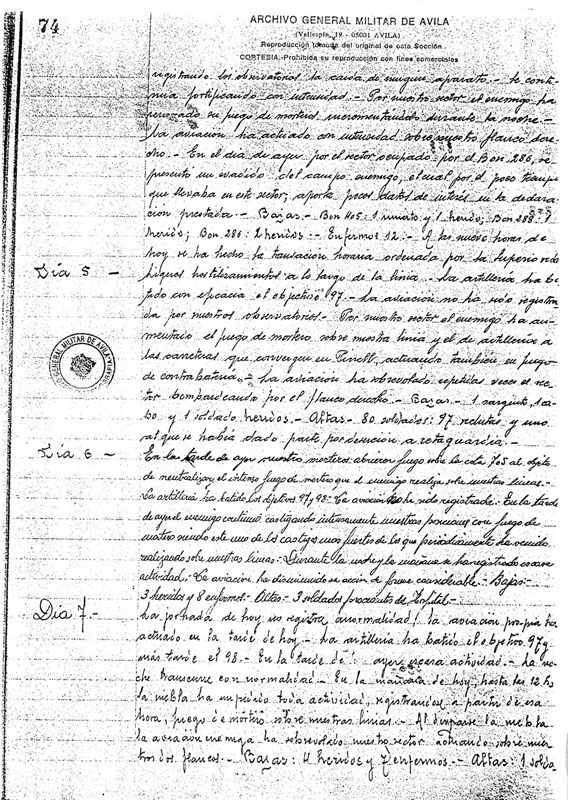 74
ARCHIVO GENERAL MILITAR DE AVILA
(Vallespin, 19 - 05001 AVILA)
Reproducción tomada del original de esta Sección
CORTESIA.-Prohibida su reproducción con fines comerciales
registrando los observatorios la caida de ningun aparato.- Se conti-
nua fortificando con intensidad.- Por nuestro sector el enemigo ha
su fuego de mortero incrementandolo durante la noche.-
La aviación ha actuado con intensidad sobre nuestro flanco dere-
cho.- En el dia de ayer por el sector ocupado por el Bon 286, se
presento un evadido del campo enemigo, el cual por el poco tiempo
que llevaba en este sector, aporta pocos datos de interes en la declara-
ción prestada.- Bajas.- Bon 405: 1 muerto y 1 herido; Bon 288: 1
herido; Bon 286: 2 heridos.- Enfermos 12.- A las nueve horas de
hoy se ha hecho la transición horaria ordenada por la superioridad
Día 5 -
Ligeros hostilizamientos a lo largo de la linea.- La artilleria ha ba-
tido con eficacia el objectivo 97.- La aviación no ha sido registra-
da por nuestros observatorios.- Por nuestro sector el enemigo ha au-
mentado el fuego de mortero sobre nuestra linea y el de artilleria a
las carreteras que convergen en actuando tambien en fuego
de contrabatería.- La aviación ha sobrevolado repetidas veces el sec-
tor bombardeando por el flanco derecho.- Bajas.- 1 sargento, 1 ca-
bo y 1 soldado, heridos.- Altas.- 80 soldados: 97 reclutas y uno
al que se había dado parte por a retaguardia.-
ARCHIVO GENERAL MILITAR DE AVILA
Día 6 -
En la tarde de ayer nuestro mortero abrieron fuego sobre la cota 705 al objeto
de neutralizar el intenso fuego de mortero que el enemigo realiza sobre nuestras lineas.-
La artilleria ha batido los objetivos 97 y 98.- La aviación no ha sido registrada.- En la tarde
de ayer el enemigo continuó castigando intensamente nuestras posiciones con fuego de
mortero siendo este uno de los castigos mas fuertes de los que periodicamente ha venido
realizando sobre nuestras lineas.- Durante la noche y la mañana se ha registrado escasa
actividad.- La aviación ha disminuido su acción de forma considerable.- Bajas:
3 heridos y 8 enfermos.- Altas.- 3 soldados procedentes de Hospital.-
Día 7.-
La jornada de hoy no registra anormalidad: la aviación propia ha
actuado en la tarde de hoy.- La artilleria ha batido el objetivo 97 y
más tarde el 98.- En la tarde de ayer escasa actividad.- La no-
che transcurre con normalidad.- En la mañana de hoy, hasta las 12 h,
la niebla ha impedido toda actividad, registrandose a partir de esa
hora, fuego de mortero sobre nuestras lineas.- Al disiparse la niebla
la aviación enemiga ha sobrevolado nuestro sector actuando sobre nues-
tros dos flancos.- Bajas: 4 heridos y 7 enfermos.- Altas: 1 solda